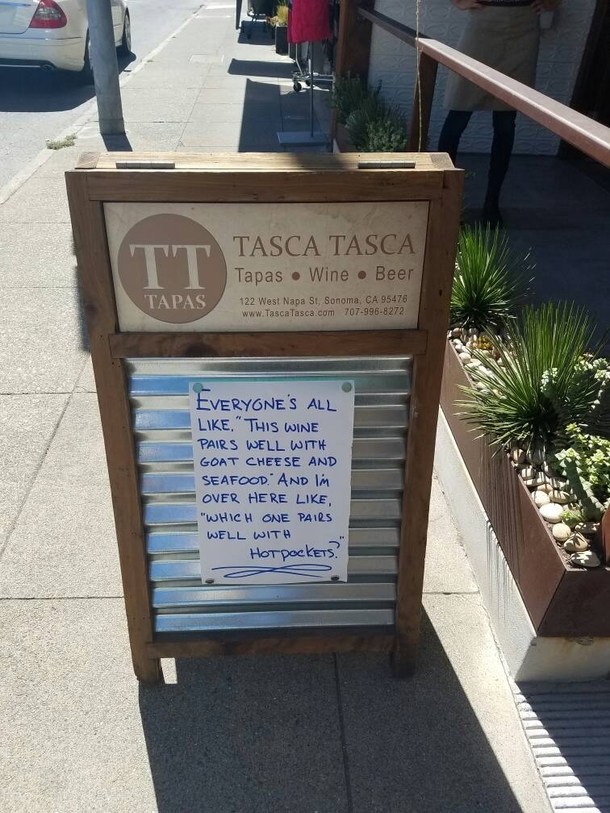 TT
TAPAS
TASCA TASCA
Tapas • Wine • Beer
122 West Napa St, Sonoma, CA 95476
www.TascaTasca.com 707-996-8272
EVERYONE'S ALL
LIKE, "THIS WINE
PAIRS WELL WITH
GOAT CHEESE AND
SEAFOOD." AND I'M
OVER HERE LIKE,
"WHICH ONE PAIRS
WELL WITH
HOTPOCKETS?"